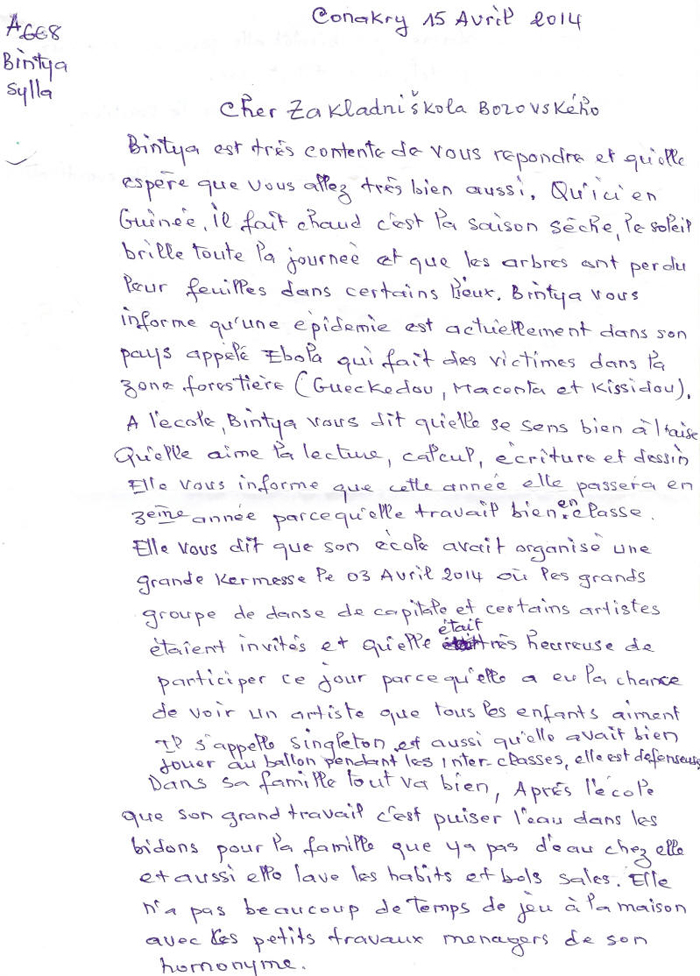 Conakry 15 Avril 2014
A668
Bintya
Sylla
Cher Zakladniškola Bozovského
Bintya est très contente de vous repondre et qu'elle
espère que vous allez très bien aussi. Qu'ici en
Guinée, il fait chaud c'est la saison sèche, le soleil
brille toute la journeé et que les arbres ont perdu
leur feuilles dans certains lieux. Bintya vous
informe qu'une epidemie est actuellement dans son
pays appélé Ebola qui fait des victimes dans la
zone forestière (Gueckedou, Maconta et Kissidou).
A l'ecole, Bintya vous dit qu'elle se sens bien à l'aise
Qu'elle aime la lecture, calcul, écriture et dessin
Elle vous informe que cette année elle passera en
3eme année parcequ'elle travail bien en classe.
Elle vous dit que son école avait organisé une
grande Kermesse le 03 Avril 2014 où les grands
groupe de danse de capitale et certains artistes
étaient invités et qu'elle était très heureuse de
participer ce jour parcequ'elle a eu la chance
de voir un artiste que tous les enfants aiment
Il s'appelle Singleton et aussi qu'elle avait bien
jouer au ballon pendant les Inter-classes, elle est défenseuse
Dans sa famille tout va bien, Après l'école
que son grand travail c'est puiser l'eau dans les
bidons pour la famille que ya pas d'eau chez elle
et aussi elle lave les habits et bols sales. Elle
n'a pas beaucoup de temps de jeu à la maison
avec les petits travaux menagers de son
homonyme.